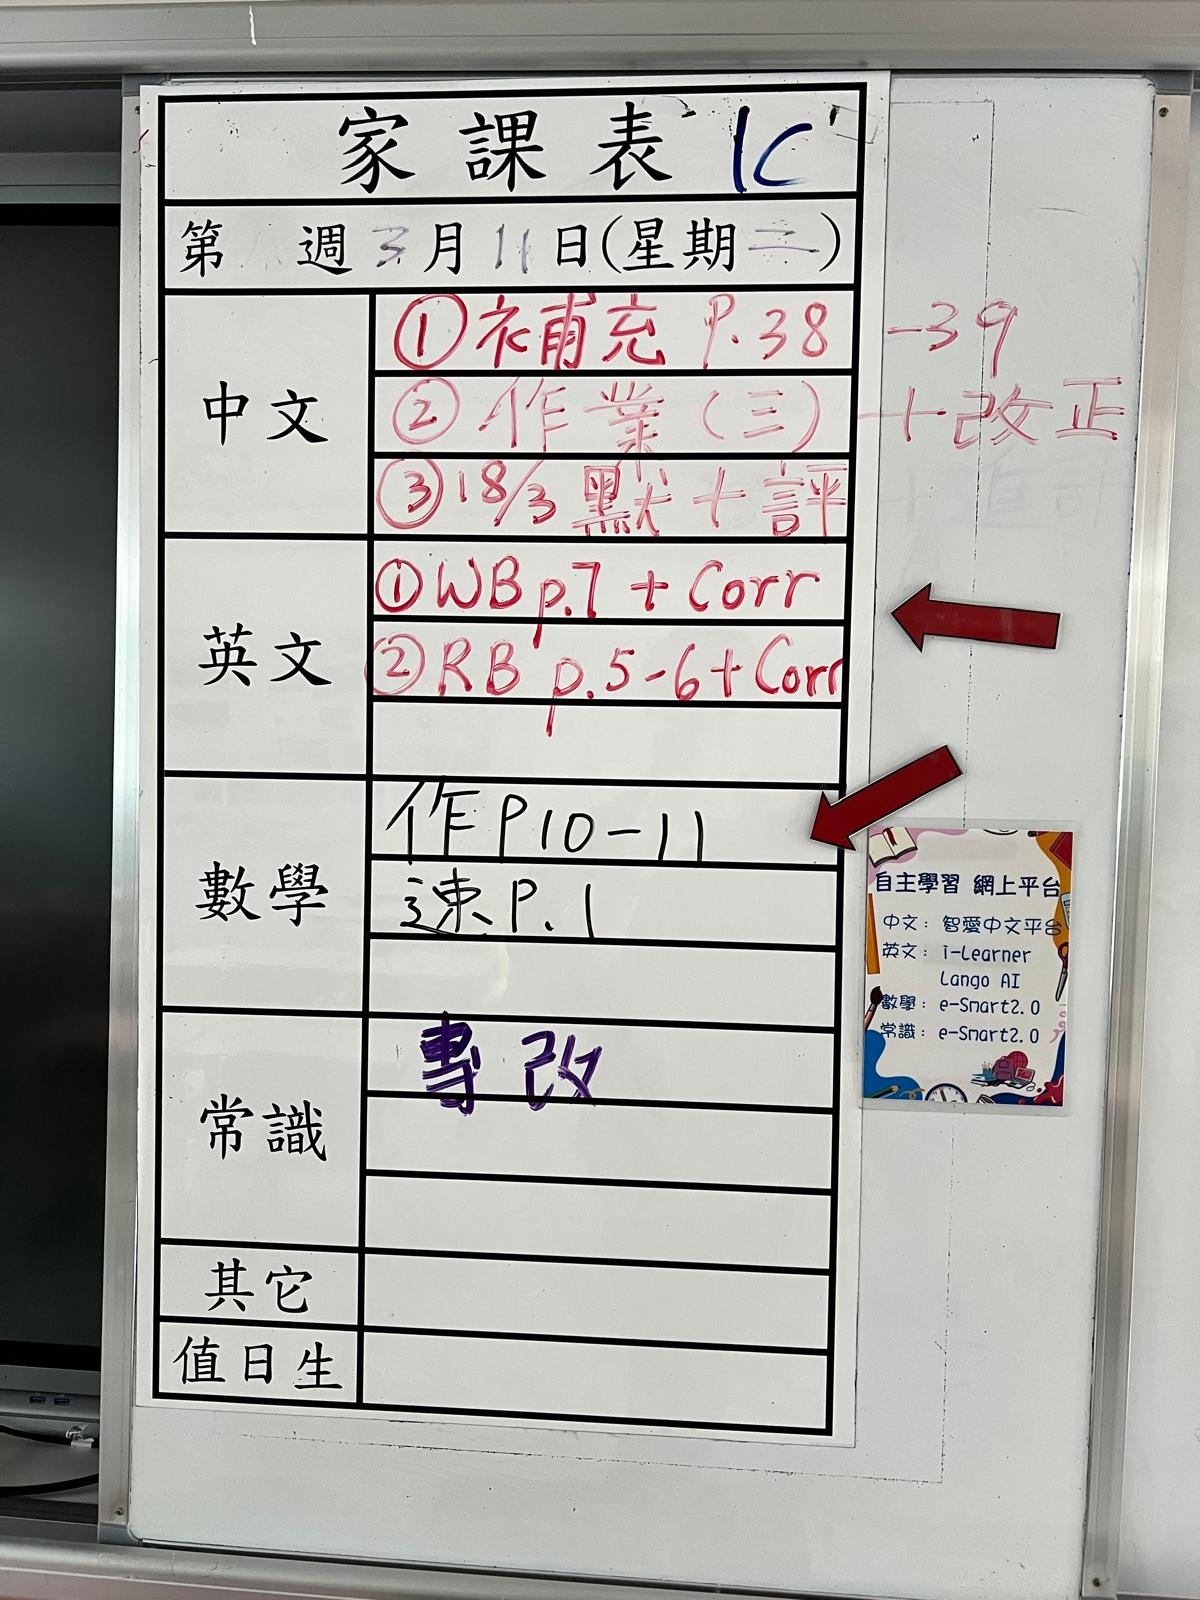 家課表 1C
第 週 3月11日(星期二)
中文
①補充 P.38-39
②作業(三)+改正
③18/3 默+評
英文
①WB p.7 + Corr
②RB p.5-6+Corr
數學
作P10-11
速P.1
常識
專改
其它
值日生
自主學習 網上平台
中文: 智愛中文平台
英文: i-Learner
Lango AI
數學: e-Smart2.0
常識: e-Smart2.0